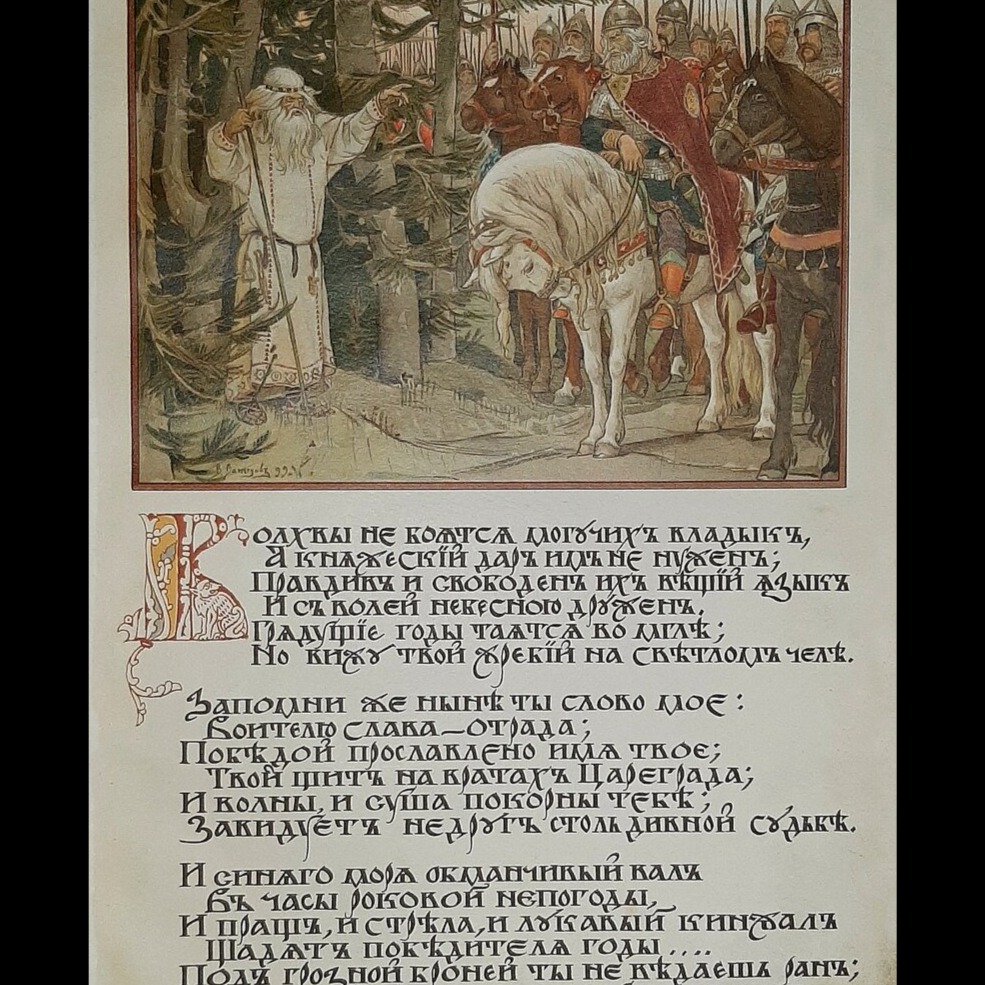 В. Васнецовъ 99
Волхвы не боятся могучихъ владыкъ,
А княжескій даръ имъ не нуженъ;
Правдивъ и свободенъ ихъ вѣщій языкъ
И съ волей небесною друженъ.
Грядущіе годы таятся во мглѣ;
Но вижу твой жребій на свѣтломъ челѣ.
Запомни же нынѣ ты слово мое:
Воителю слава — отрада;
Побѣдой прославлено имя твое;
Твой щитъ на вратахъ Цареграда;
И волны, и суша покорны тебѣ;
Завидуетъ недругъ столь дивной судьбѣ.
И синяго моря обманчивый валъ
Въ часы роковой непогоды,
И пращъ, и стрѣла, и лукавый кинжалъ
Щадятъ побѣдителя годы....
Подъ грозной броней ты не вѣдаешь ранъ;